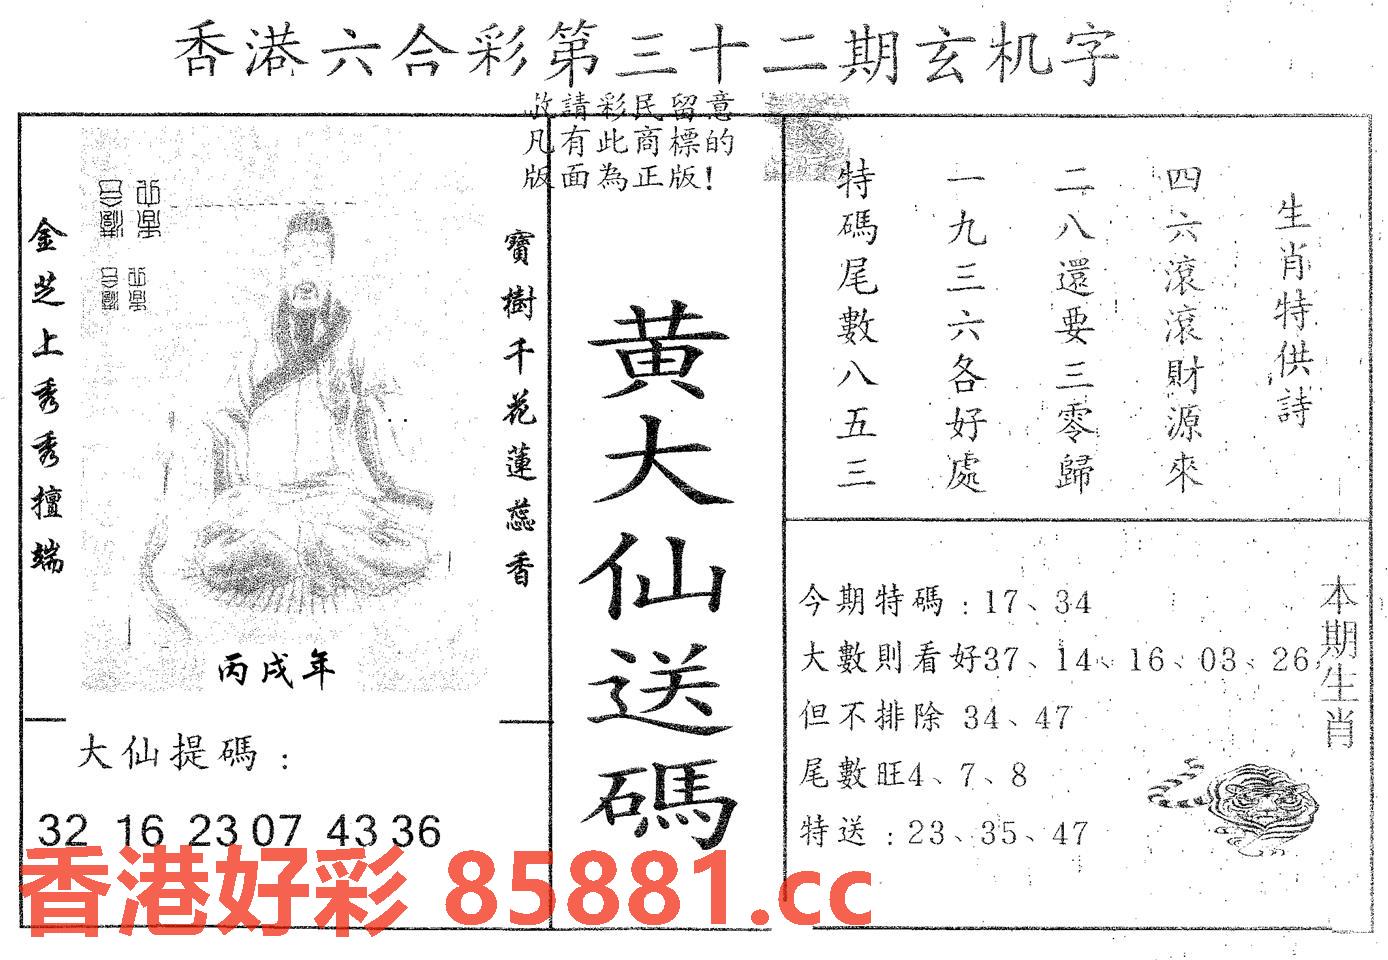 香港六合彩第三十二期玄机字
敬請彩民留意
凡有此商標的
版面為正版!
金芝上秀秀擅端
寶樹千花蓮蕊香
丙戌年
大仙提碼：
32 16 23 07 43 36
黄大仙送碼
生肖特供詩
四六滾滾財源來
二八還要三零歸
一九三六各好處
特碼尾數八五三
本期生肖
今期特碼：17、34
大數則看好37、14、16、03、26,
但不排除 34、47
尾數旺4、7、8
特送：23、35、47
香港好彩 85881.cc